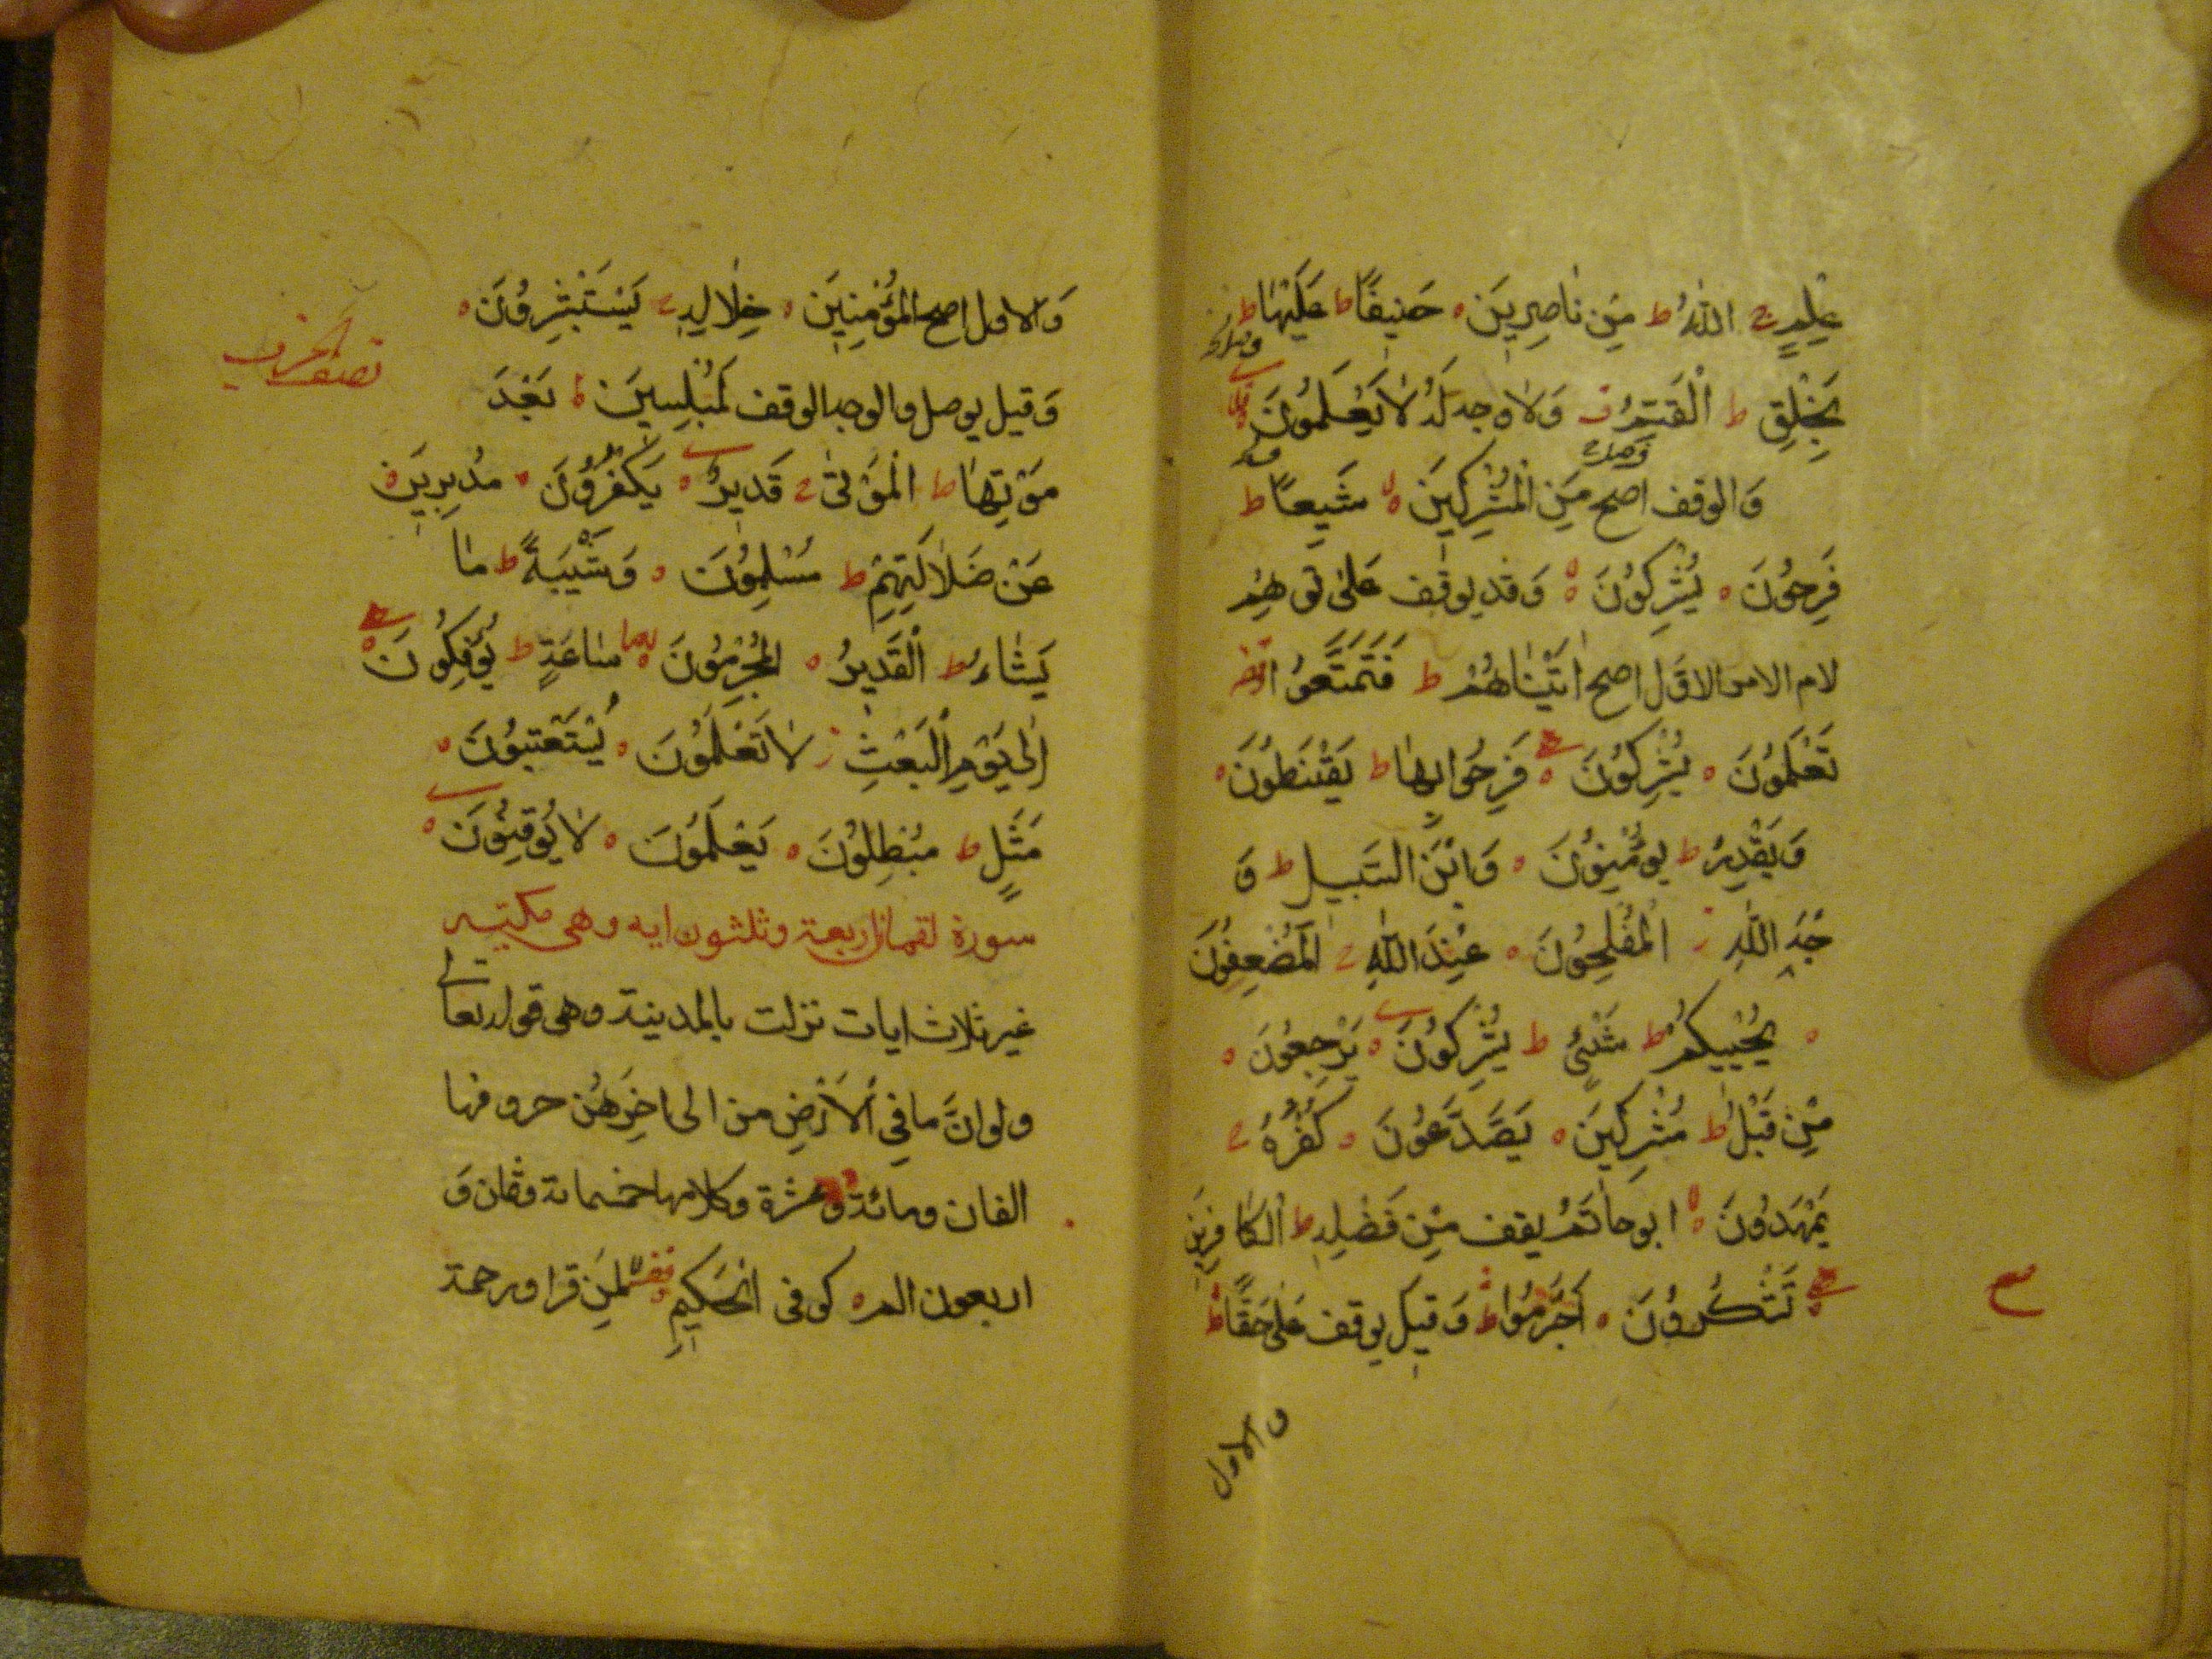 عِلْمٍ ج اللّٰهُ ط مِنْ نَاصِرِيْنَ ه حَنِيفًا ط عَلَيْهَا ط
لِخَلْقِ ط الْقَيِّمُ ق وَلا وجه لَهُ لا يَعْلَمُونَ
وَالوقف اصح مِنَ الْمُشْرِكِيْنَ ه شِيَعًا ط
فَرِحُونَ ه يُشْرِكُوْنَ ه وَقد يوقف عَلىٰ توهم
لام الامر الاوّل اصح اٰتَيْنَاهُمْ ط فَتَمَتَّعُوا
تَعْلَمُوْنَ ه يُشْرِكُوْنَ ه فَرِحُوا بِهَا ط يَقْنَطُوْنَ ه
وَيَقْدِرُ ط يُوْمِنُوْنَ ه وَابْنَ السَّبِيْلِ ط وَ
جْهَ اللّٰهِ ز الْمُفْلِحُوْنَ ه عِنْدَ اللّٰهِ ج الْمُضْعِفُوْنَ
ه يُحْيِيكُمْ ط شَيْئٍ ط يُشْرِكُوْنَ ه يَرْجِعُوْنَ ه
مِنْ قَبْلُ ط مُشْرِكِيْنَ ه يَصَّدَّعُوْنَ ه كُفْرُهُ ج
يَمْهَدُوْنَ ه ابو حاتم يقف مِنْ فَضْلِهِ ط الْكَافِرِيْنَ
ه تَشْكُرُوْنَ ه اَجْرَمُوا ط وَقيل يوقف عَلىٰ حَقًّا ط
ع
والاول
وَالاول اصح الْمُؤْمِنِيْنَ ه خِلَالِهِ ج يَسْتَبْشِرُوْنَ ه
وَقيل يوصل والوجه الوقف لَمُبْلِسِيْنَ ه بَعْدَ
نصف الحزب
مَوْتِهَا ط الْمَوْتٰى ج قَدِيْرٌ ه يَكْفُرُوْنَ ه مُدْبِرِيْنَ ه
عَنْ ضَلَالَتِهِمْ ط مُسْلِمُوْنَ ه وَشَيْبَةً ط مَا
يَشَاءُ ط الْقَدِيْرُ ه الْمُجْرِمُوْنَ سَاعَةٍ ط يُؤْفَكُوْنَ ه
اِلٰى يَوْمِ الْبَعْثِ ز لَا تَعْلَمُوْنَ ه يُسْتَعْتَبُوْنَ ه
مَثَلٍ ط مُبْطِلُوْنَ ه يَعْلَمُوْنَ ه لَا يُوْقِنُوْنَ ه
سورة لقمان اربعة وثلثون ايه وهي مكيته
غير ثلاث ايات نزلت بالمدينة وهي قوله تعالى
ولو انَّ ما فِي الْاَرْضِ من الى اخرهن حروفها
الفان ومائة وعشرة وكلامها خمسمائة وثمان وَ
اربعون الم ه كوفى الحَكِيْمِ لمن قرا ورحمة